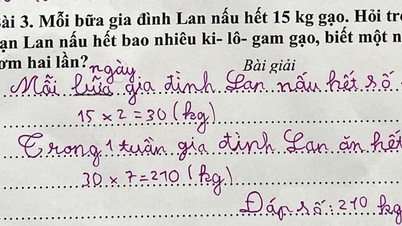 ài 3. Mỗi bữa gia đình Lan nấu hết 15 kg gạo. Hỏi tr
ạn Lan nấu hết bao nhiêu ki- lô- gam gạo, biết một n
ơm hai lần?
ngày
Bài giải
Mỗi bữa gia đình Lan nấu hết số
15 × 2 = 30 (kg)
Trong 1 tuần gia đình Lan ăn hết
30 × 7 = 210 (kg)
Đáp số: 210 kg